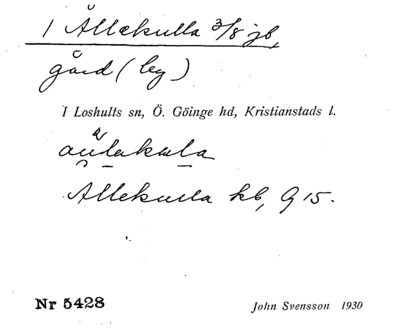 1 Ållekulla 3/8 jb,
gård (bg)
I Loshults sn, Ö. Göinge hd, Kristianstads l.
Allekulla kb, G 15.
Nr 5428
John Svensson 1930